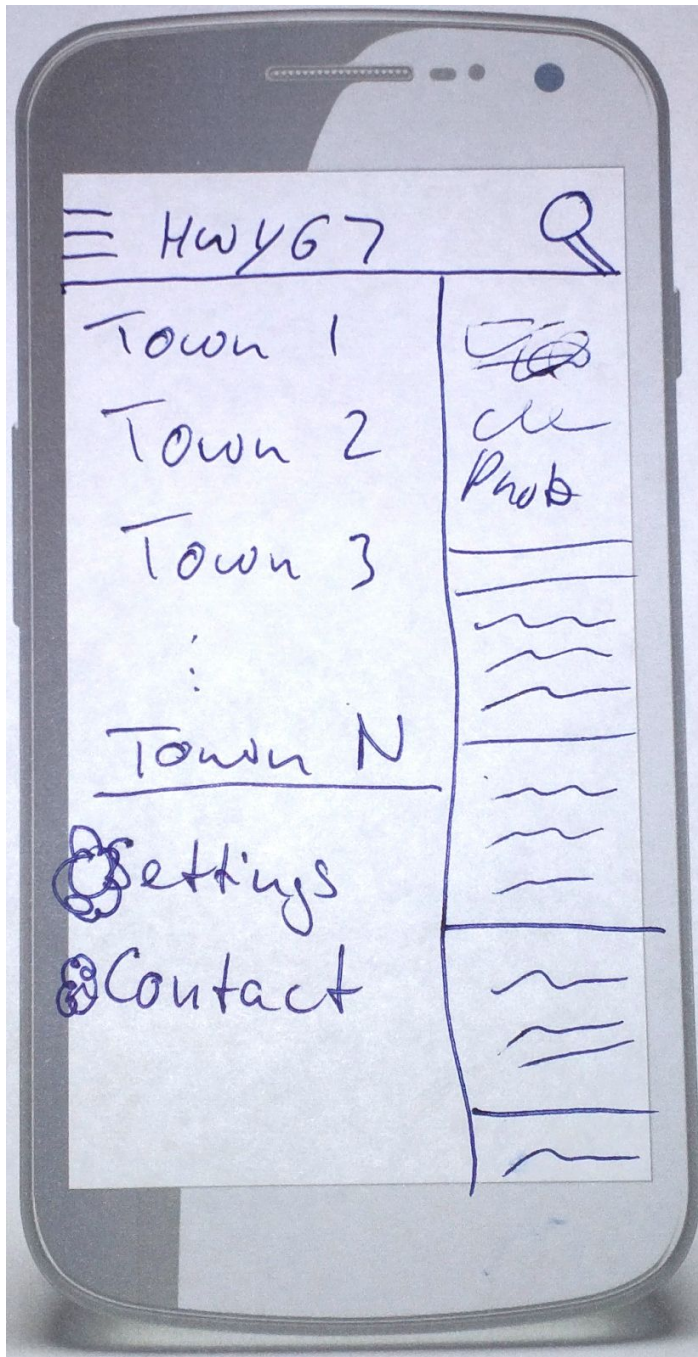 HWY67
Town 1
Town 2
Town 3
⋮
Town N
Settings
Contact